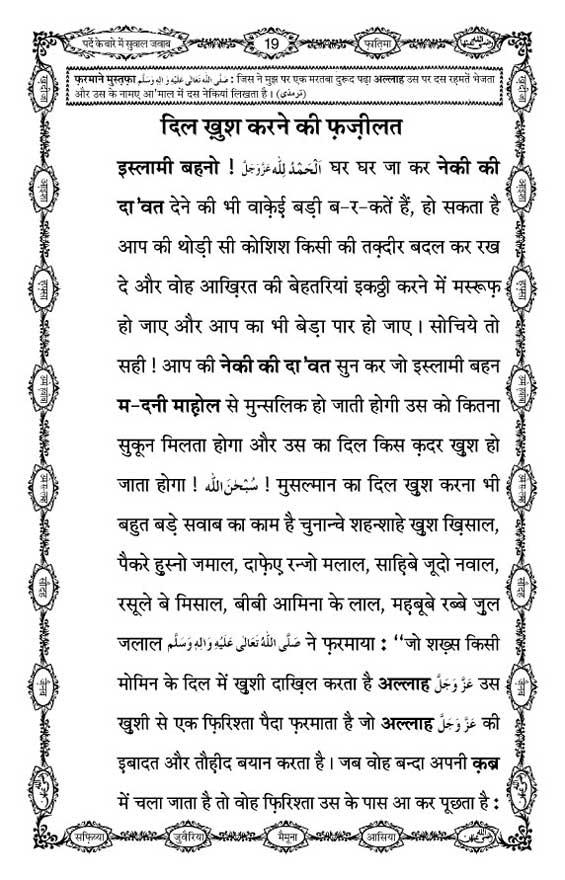 पर्दे के बारे में सुवाल जवाब
19
फ़ातिमा
फ़रमाने मुस्तफ़ा صَلَّى اللهُ تَعَالٰى عَلَيْهِ وَاٰلِهٖ وَسَلَّم : जिस ने मुझ पर एक मरतबा दुरूद पढ़ा अल्लाह उस पर दस रहमतें भेजता
और उस के नामए आ'माल में दस नेकियां लिखता है। (ترمذى)
दिल ख़ुश करने की फ़ज़ीलत
इस्लामी बहनो ! اَلْحَمْدُ لِلّٰه عَزَّوَجَلَّ घर घर जा कर नेकी की
दा'वत देने की भी वाक़ेई बड़ी ब-र-कतें हैं, हो सकता है
आप की थोड़ी सी कोशिश किसी की तक़्दीर बदल कर रख
दे और वोह आख़िरत की बेहतरियां इकठ्ठी करने में मस्रूफ़
हो जाए और आप का भी बेड़ा पार हो जाए। सोचिये तो
सही ! आप की नेकी की दा'वत सुन कर जो इस्लामी बहन
म-दनी माह़ोल से मुन्सलिक हो जाती होगी उस को कितना
सुकून मिलता होगा और उस का दिल किस क़दर ख़ुश हो
जाता होगा ! سُبْحٰنَ اللّٰه ! मुसल्मान का दिल ख़ुश करना भी
बहुत बड़े सवाब का काम है चुनान्चे शहन्शाहे ख़ुश ख़िसाल,
पैकरे हुस्नो जमाल, दाफ़ेए रन्जो मलाल, साहिबे जूदो नवाल,
रसूले बे मिसाल, बीबी आमिना के लाल, महबूबे रब्बे ज़ुल
जलाल صَلَّى اللّٰهُ تَعَالٰى عَلَيْهِ وَاٰلِهٖ وَسَلَّم ने फ़रमाया : ‘‘जो शख़्स किसी
मोमिन के दिल में ख़ुशी दाख़िल करता है अल्लाह عَزَّ وَجَلَّ उस
ख़ुशी से एक फ़िरिश्ता पैदा फ़रमाता है जो अल्लाह عَزَّ وَجَلَّ की
इबादत और तौह़ीद बयान करता है। जब वोह बन्दा अपनी क़ब्र
में चला जाता है तो वोह फ़िरिश्ता उस के पास आ कर पूछता है :
सफ़िय्या
जुवैरिया
मैमूना
आसिया